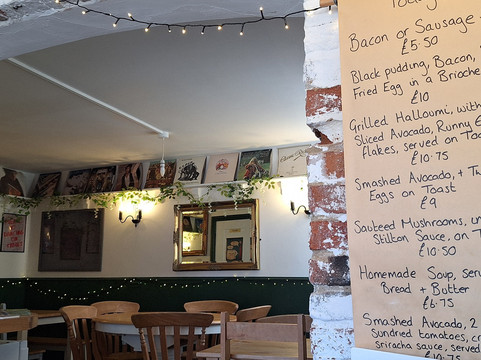 Today
Bacon or Sausage
£5.50
Black pudding, Bacon,
Fried Egg in a Brioche
£10
Grilled Halloumi, with
Sliced Avocado, Runny E
flakes, served on Toa
£10.75
Smashed Avocado, + T
Eggs on Toast
£9
Sauteed Mushrooms, in
Stilton Sauce, on T
£10.50
Homemade Soup, ser
Bread + Butter
£6.75
Smashed Avocado, 2
Sundried tomatoes, c
sriracha sauce, served
£10.75